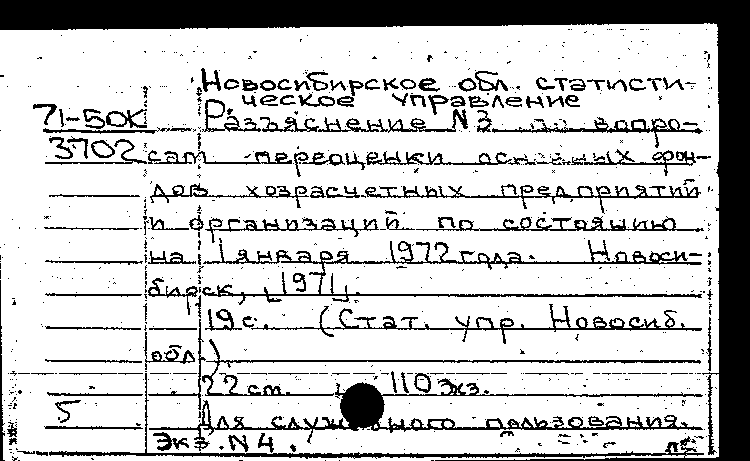 Новосибирское обл. статисти-
ческое управление
71-50К
Разъяснение N3 по вопро-
3702
сам переоценки основных фон-
дов хозрасчетных предприятий
и организаций по состоянию
на 1 января 1972 года. Новоси-
бирск, [1971].
19 с. (Стат. упр. Новосиб.
обл.)
22 см. 110 экз.
5
Для служебного пользования.
Экз. N4.